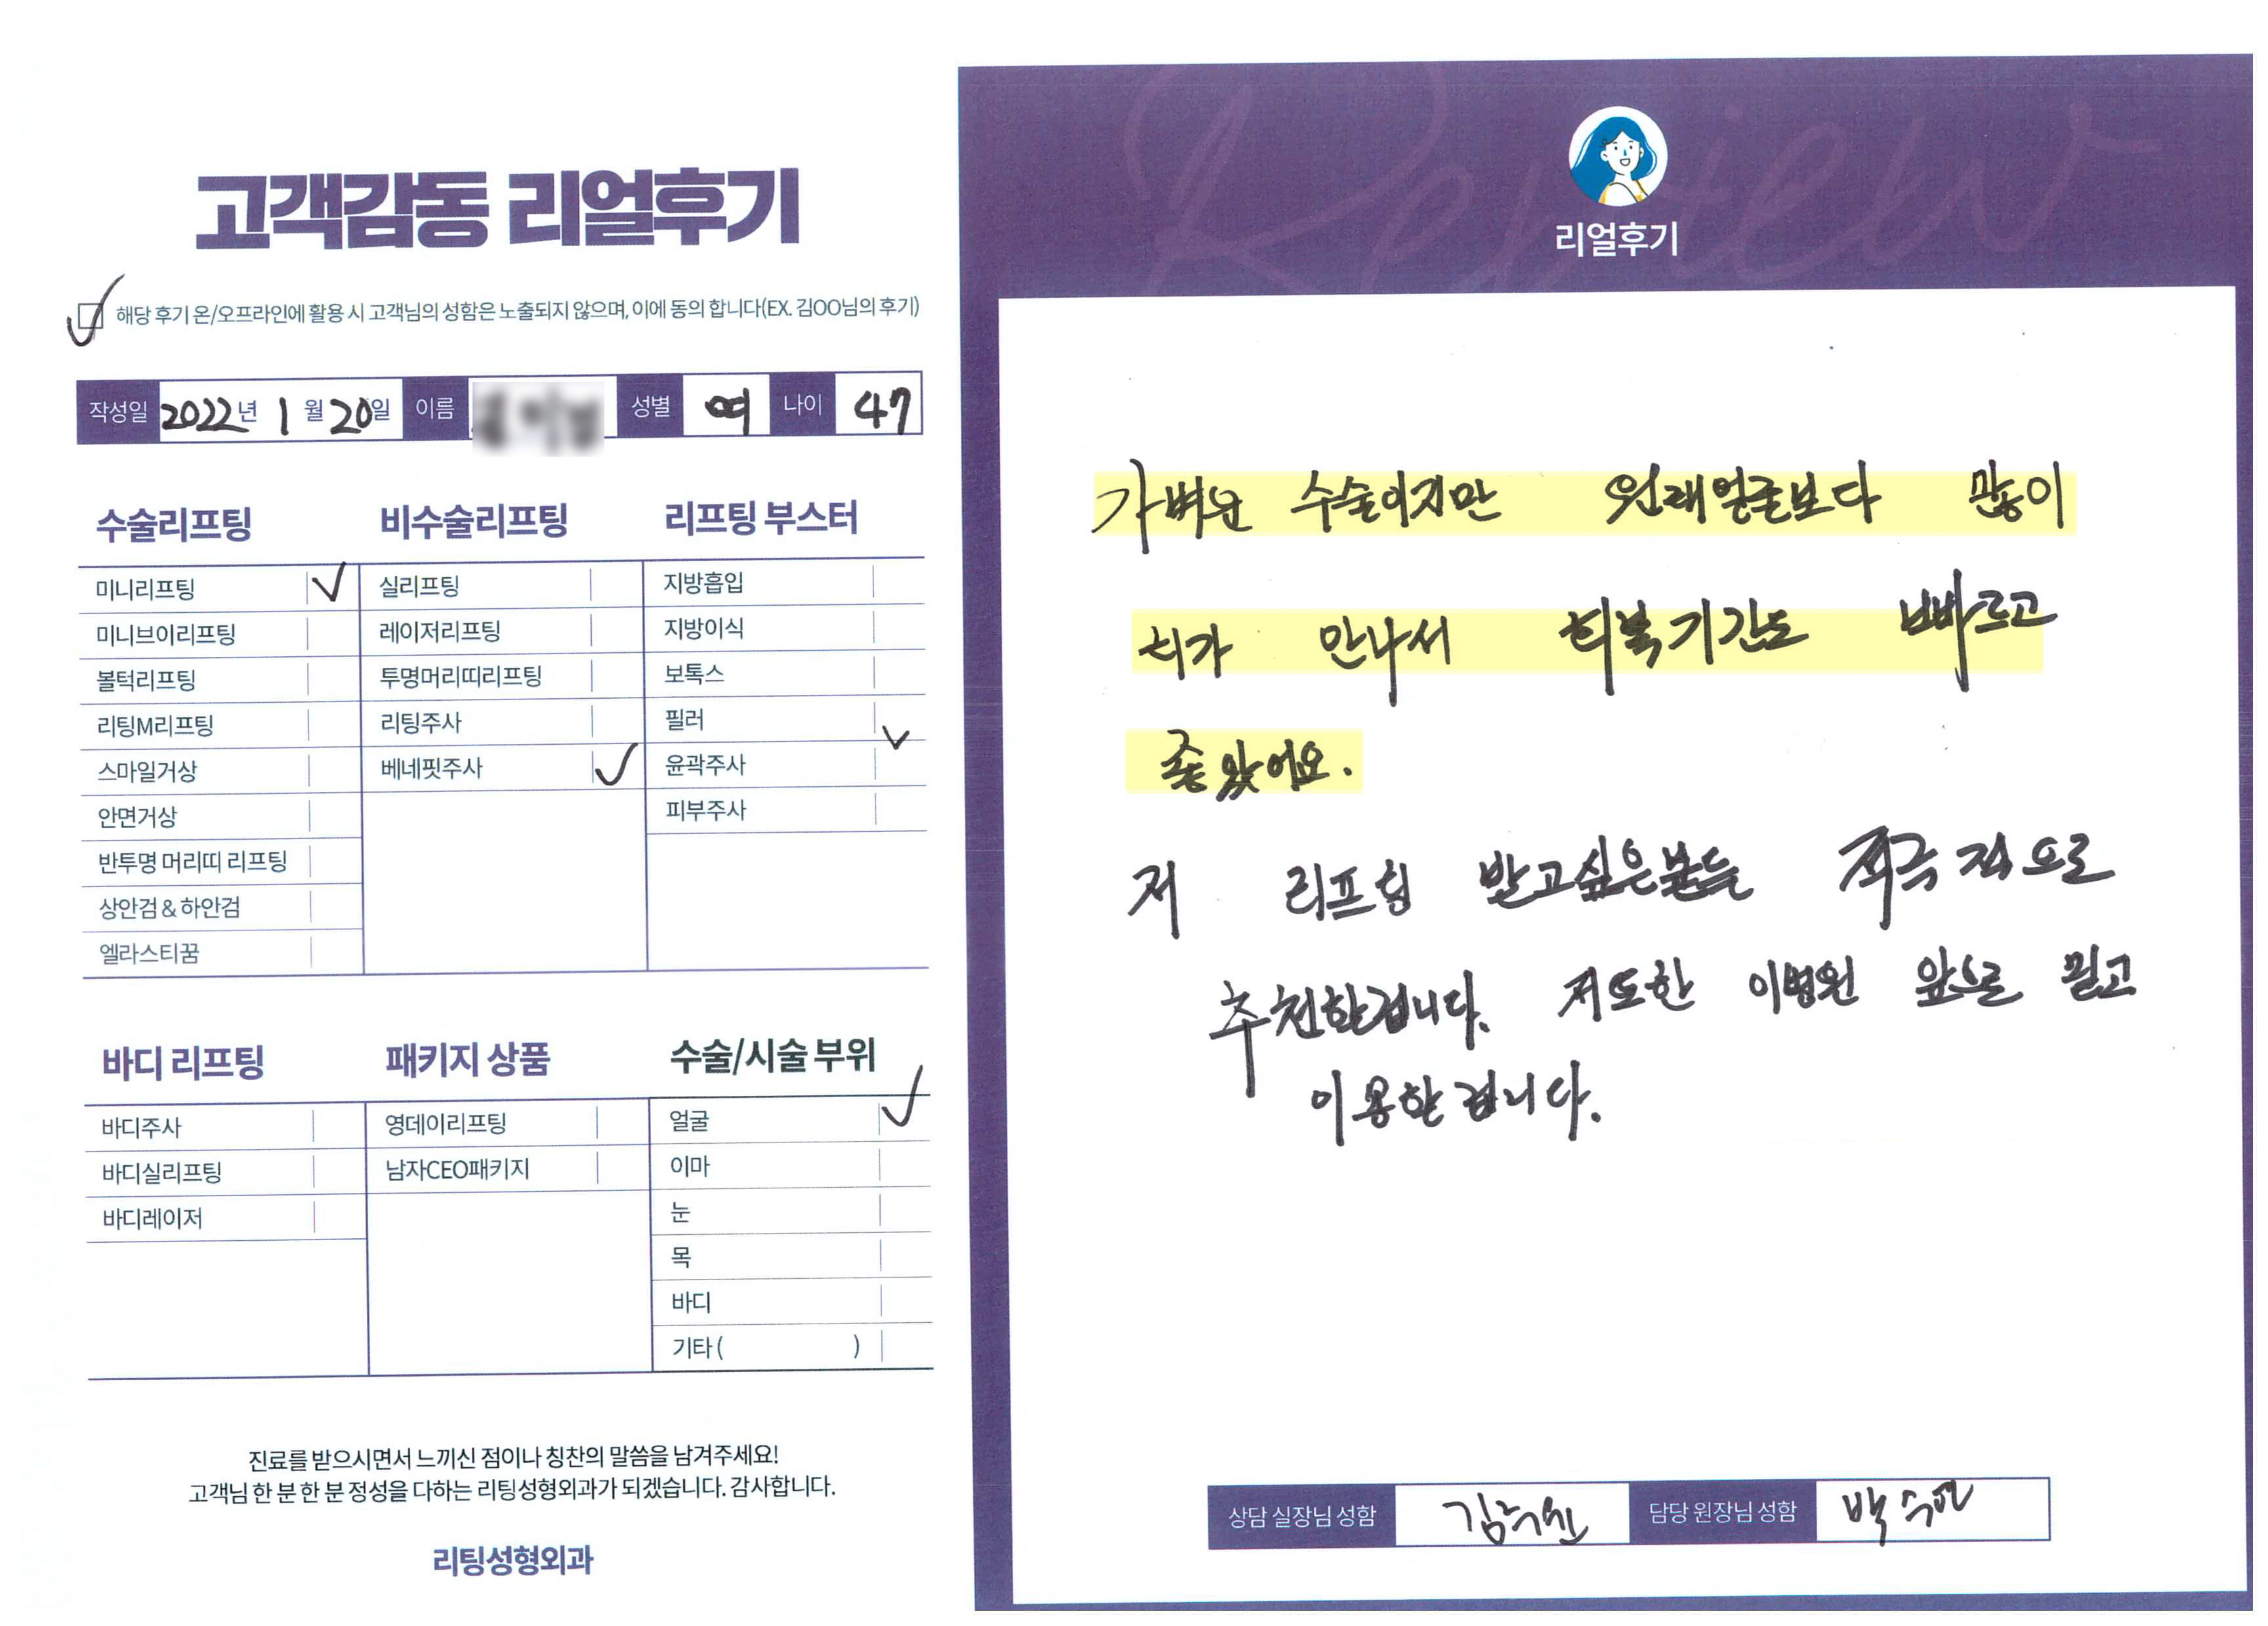 고객감동 리얼후기
해당 후기 온/오프라인에 활용 시 고객님의 성함은 노출되지 않으며, 이에 동의 합니다(EX. 김OO님의 후기)
작성일 2022년 1월 20일 이름 성별 여 나이 47
수술리프팅
미니리프팅
미니브이리프팅
볼턱리프팅
리팅M리프팅
스마일거상
안면거상
반투명 머리띠 리프팅
상안검 & 하안검
엘라스티꿈
비수술리프팅
실리프팅
레이저리프팅
투명머리띠리프팅
리팅주사
베네핏주사
리프팅 부스터
지방흡입
지방이식
보톡스
필러
윤곽주사
피부주사
바디 리프팅
바디주사
바디실리프팅
바디레이저
패키지 상품
영데이리프팅
남자CEO패키지
수술/시술 부위
얼굴
이마
눈
목
바디
기타 ( )
진료를 받으시면서 느끼신 점이나 칭찬의 말씀을 남겨주세요!
고객님 한 분 한 분 정성을 다하는 리팅성형외과가 되겠습니다. 감사합니다.
리팅성형외과
Review
리얼후기
가벼운 수술이지만 원래얼굴보다 많이
티가 안나서 회복기간도 빠르고
좋았어요.
저 리프팅 받고싶은분들 적극적으로
추천할겁니다. 저도한 이병원 앞으로 믿고
이용할겁니다.
상담 실장님 성함 담당 원장님 성함 박